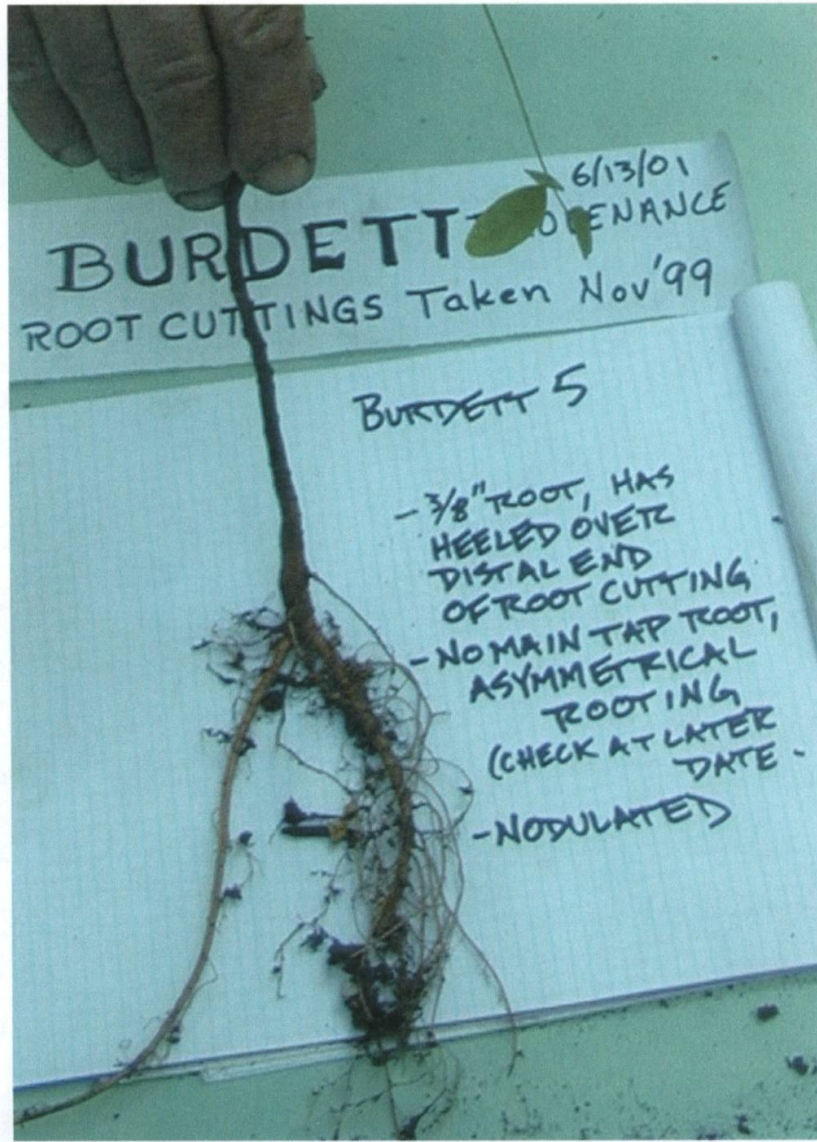 6/13/01
BURDETT OVENANCE
ROOT CUTTINGS Taken Nov'99
BURDETT 5
- 3/8" ROOT, HAS
HEELED OVER
DISTAL END
OF ROOT CUTTING
- NO MAIN TAP ROOT,
ASYMMETRICAL
ROOTING
(CHECK AT LATER
DATE.
- NODULATED